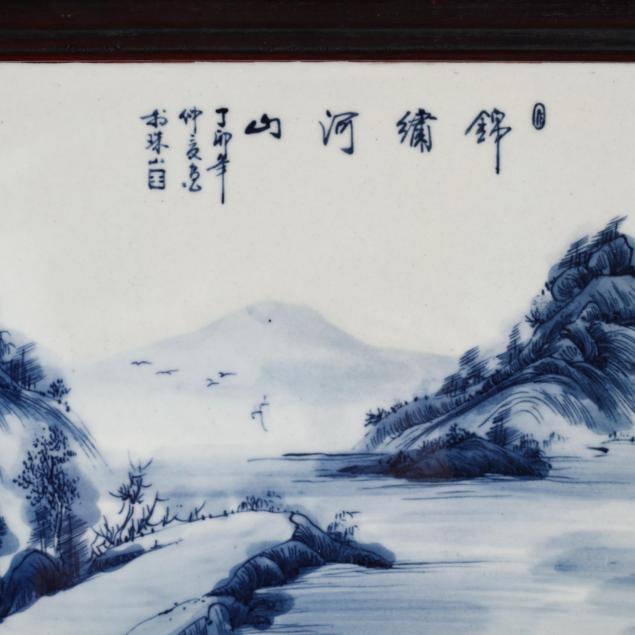 錦繡河山
丁卯年
仲夏画
於珠山